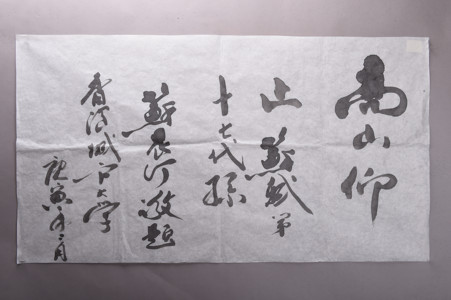 高山仰
止 蘇軾 第
十七代孫
蘇 敬題
香港城市大学
庚寅年二月